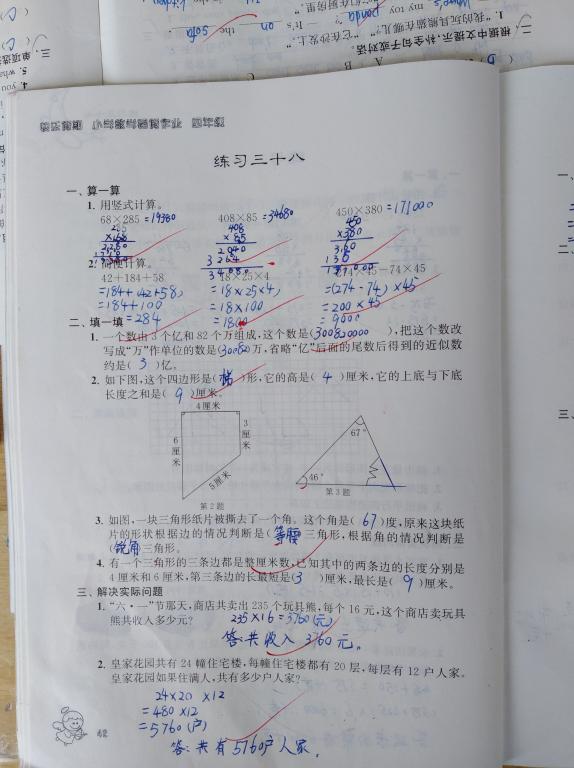 练习三十八
一、算一算
1. 用竖式计算。
68×285=19380 408×85=34680 450×380=171000
2. 简便计算。
42+184+58 18×25×4 274×45-74×45
=184+(42+58) =18×(25×4) =(274-74)×45
=184+100 =18×100 =200×45
=284 =1800 =9000
二、填一填
1. 一个数由3个亿和82个万组成,这个数是(300820000),把这个数改
写成“万”作单位的数是(30082)万,省略“亿”后面的尾数后得到的近似数
约是(3)亿。
2. 如下图,这个四边形是(梯)形,它的高是(4)厘米,它的上底与下底
长度之和是(9)厘米。
4厘米
6厘米
3厘米
5厘米
第2题
67°
46°
第3题
3. 如图,一块三角形纸片被撕去了一个角。这个角是(67)度,原来这块纸
片的形状根据边的情况判断是(等腰)三角形,根据角的情况判断是
(锐角)三角形。
4. 有一个三角形的三条边都是整厘米数,已知其中的两条边的长度分别是
4厘米和6厘米,第三条边的长最短是(3)厘米,最长是(9)厘米。
三、解决实际问题
1. “六·一”节那天,商店共卖出235个玩具熊,每个16元,这个商店卖玩具
熊共收入多少元?
235×16=3760(元)
答:共收入3760元。
2. 皇家花园共有24幢住宅楼,每幢住宅楼都有20层,每层有12户人家。
皇家花园如果住满人,共有多少户人家?
24×20×12
=480×12
=5760(户)
答:共有5760户人家。
42